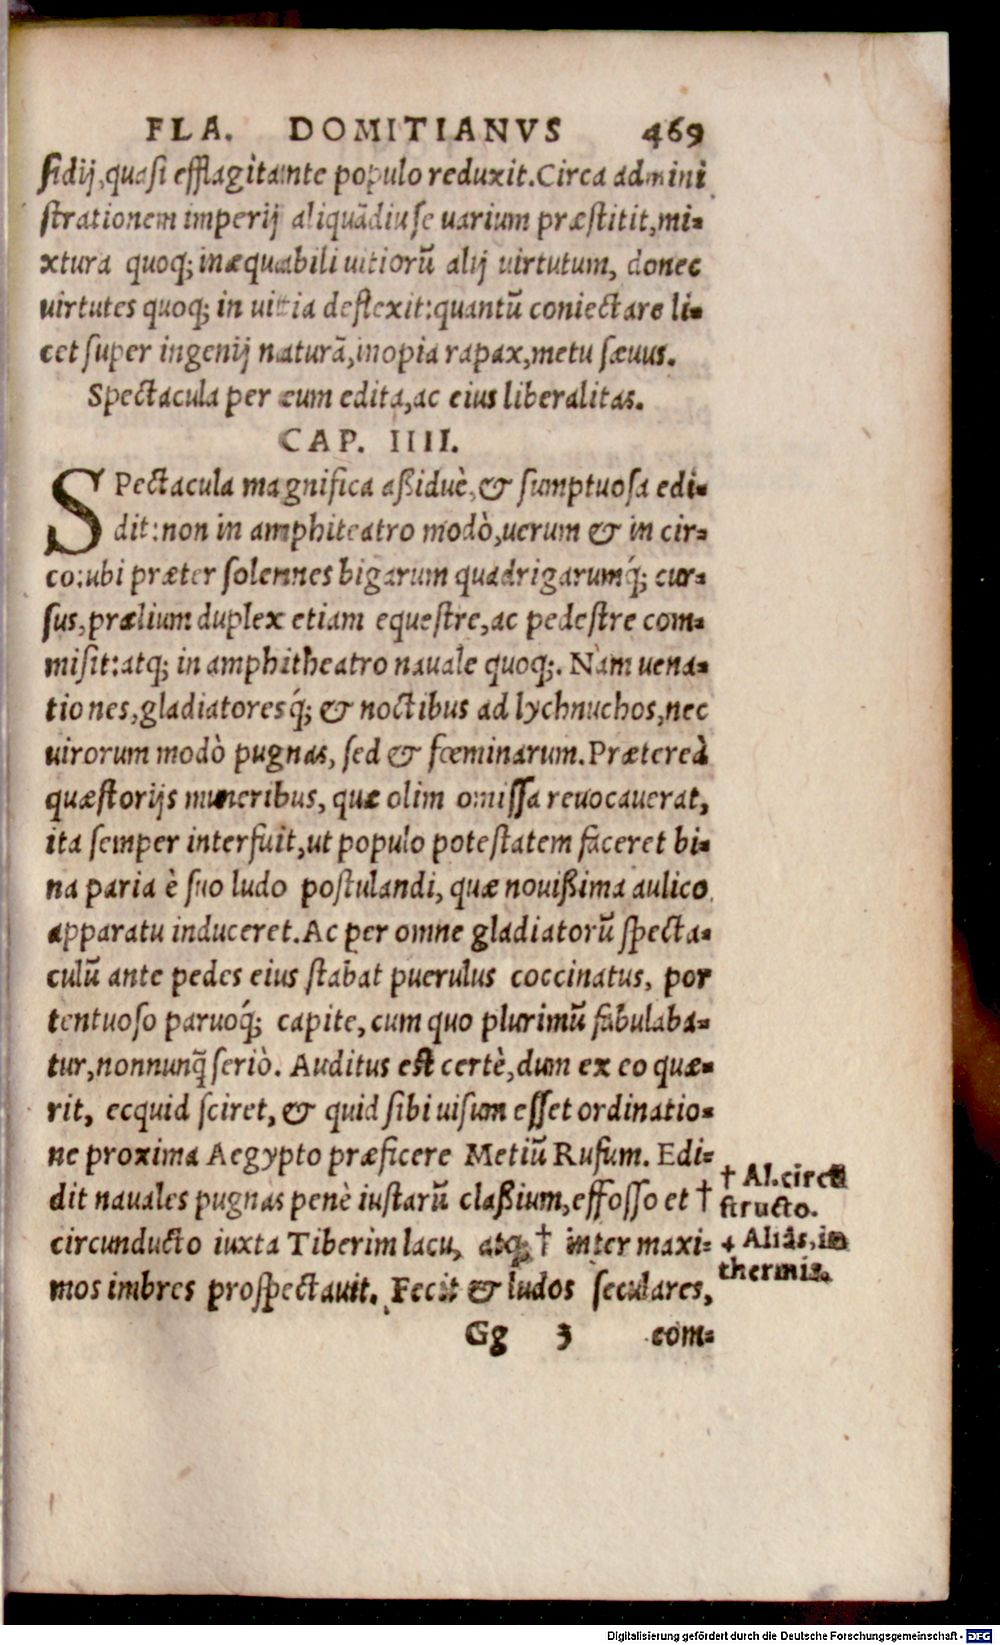 FLA. DOMITIANVS 469
sidij, quasi efflagitante populo reduxit. Circa admini
strationem imperij aliquãdiu se uarium præstitit, mi-
xtura quoq; inæquabili uitiorũ alij uirtutum, donec
uirtutes quoq; in uitia deflexit: quantũ coniectare li-
cet super ingenij naturã, inopia rapax, metu sæuus.
Spectacula per eum edita, ac eius liberalitas.
CAP. IIII.
SPectacula magnifica aßiduè, & sumptuosa edi-
dit: non in amphiteatro modò, uerum & in cir-
co: ubi præter solennes bigarum quadrigarumq́; cur-
sus, prælium duplex etiam equestre, ac pedestre com-
misit: atq; in amphitheatro nauale quoq;. Nam uena-
tiones, gladiatoresq́; & noctibus ad lychnuchos, nec
uirorum modò pugnas, sed & fœminarum. Prætereà
quæstorijs muneribus, quæ olim omissa reuocauerat,
ita semper interfuit, ut populo potestatem faceret bi-
na paria è suo ludo postulandi, quæ nouißima aulico
apparatu induceret. Ac per omne gladiatorũ specta-
culũ ante pedes eius stabat puerulus coccinatus, por
tentuoso paruoq́; capite, cum quo plurimũ fabulaba-
tur, nonnunq̃ seriò. Auditus est certè, dum ex eo quæ-
rit, ecquid sciret, & quid sibi uisum esset ordinatio-
ne proxima Aegypto præficere Metiũ Rufum. Edi-
dit nauales pugnas penè iustarũ claßium, effosso et †
circunducto iuxta Tiberim lacu, atq; † inter maxi-
mos imbres prospectauit. Fecit & ludos seculares,
† Al. circũ
structo.
+ Aliâs, in
thermis.
Gg 3 com-
Digitalisierung gefördert durch die Deutsche Forschungsgemeinschaft - DFG